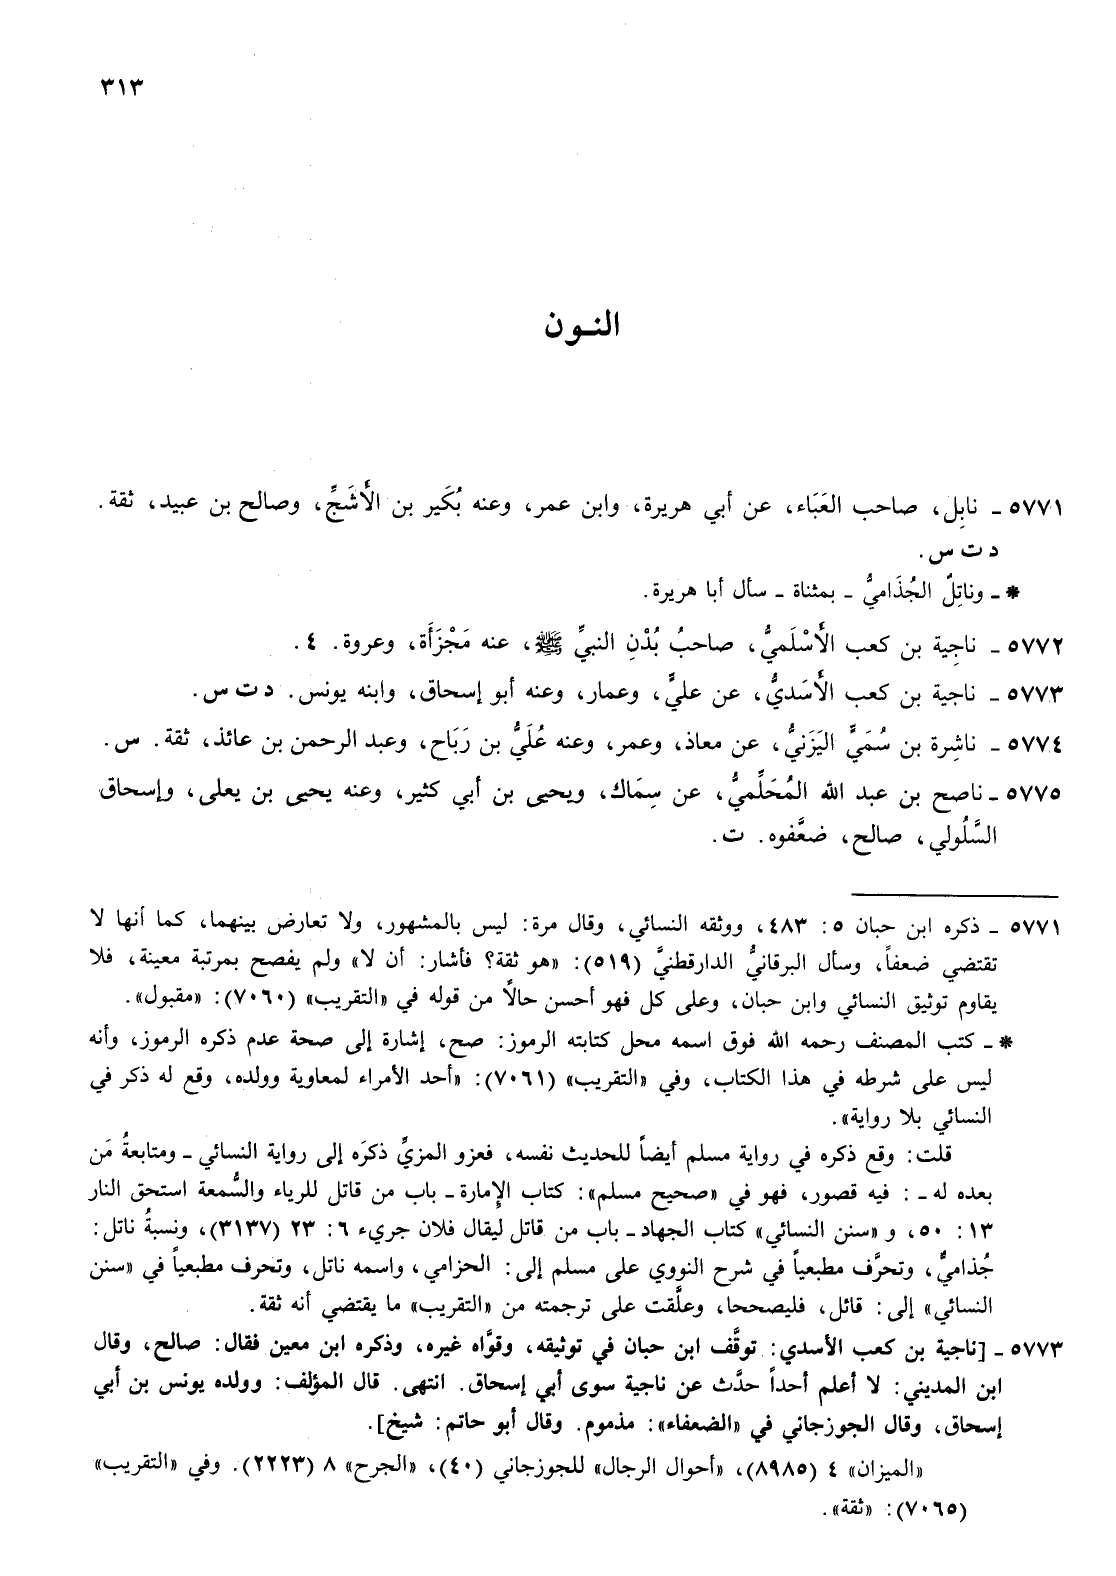 ٣١٣
النـون
٥٧٧١ ـ نابِل، صاحب العَبَاء، عن أبي هريرة، وابن عمر، وعنه بُكَير بن الأَشَجِّ، وصالح بن عبيد، ثقة.
د ت س.
* ـ وناتِلٌ الجُذَاميُّ ـ بمثناة ـ سأل أبا هريرة.
٥٧٧٢ ـ ناجِية بن كعب الأَسْلَميُّ، صاحبُ بُدْنِ النبيِّ ﷺ، عنه مَجْزَأَة، وعروة. ٤.
٥٧٧٣ ـ ناجية بن كعب الأَسَديُّ، عن عليٍّ، وعمار، وعنه أبو إسحاق، وابنه يونس. د ت س.
٥٧٧٤ ـ ناشِرة بن سُمَيٍّ اليَزَنيُّ، عن معاذ، وعمر، وعنه عُلَيُّ بن رَبَاح، وعبد الرحمن بن عائذ، ثقة. س.
٥٧٧٥ ـ ناصح بن عبد الله المُحَلِّميُّ، عن سِمَاك، ويحيى بن أبي كثير، وعنه يحيى بن يعلى، وإسحاق
السَّلُولي، صالح، ضعَّفوه. ت.
٥٧٧١ ـ ذكره ابن حبان ٥: ٤٨٣، ووثقه النسائي، وقال مرة: ليس بالمشهور، ولا تعارض بينهما، كما أنها لا
تقتضي ضعفاً، وسأل البرقانيُّ الدارقطنيَّ (٥١٩): «هو ثقة؟ فأشار: أن لا» ولم يفصح بمرتبة معينة، فلا
يقاوم توثيق النسائي وابن حبان، وعلى كل فهو أحسن حالاً من قوله في «التقريب» (٧٠٦٠): «مقبول».
* ـ كتب المصنف رحمه الله فوق اسمه محل كتابته الرموز: صح، إشارة إلى صحة عدم ذكره الرموز، وأنه
ليس على شرطه في هذا الكتاب، وفي «التقريب» (٧٠٦١): «أحد الأمراء لمعاوية وولده، وقع له ذكر في
النسائي بلا رواية».
قلت: وقع ذكره في رواية مسلم أيضاً للحديث نفسه، فعزو المزيِّ ذكرَه إلى رواية النسائي ـ ومتابعةُ مَن
بعده له ـ: فيه قصور، فهو في «صحيح مسلم»: كتاب الإمارة ـ باب من قاتل للرياء والسُّمعة استحق النار
١٣: ٥٠، و «سنن النسائي» كتاب الجهاد ـ باب من قاتل ليقال فلان جريء ٦: ٢٣ (٣١٣٧)، ونسبةُ ناتل:
جُذاميٌّ، وتحرَّف مطبعياً في شرح النووي على مسلم إلى: الحزامي، واسمه ناتل، وتحرف مطبعياً في «سنن
النسائي» إلى: قائل، فليصححا، وعلَّقت على ترجمته من «التقريب» ما يقتضي أنه ثقة.
٥٧٧٣ ـ [ناجية بن كعب الأسدي: توقَّف ابن حبان في توثيقه، وقوَّاه غيره، وذكره ابن معين فقال: صالح، وقال
ابن المديني: لا أعلم أحداً حدَّث عن ناجية سوى أبي إسحاق. انتهى. قال المؤلف: وولده يونس بن أبي
إسحاق، وقال الجوزجاني في «الضعفاء»: مذموم. وقال أبو حاتم: شيخ].
«الميزان» ٤ (٨٩٨٥)، «أحوال الرجال» للجوزجاني (٤٠)، «الجرح» ٨ (٢٢٢٣). وفي «التقريب»
(٧٠٦٥): «ثقة».